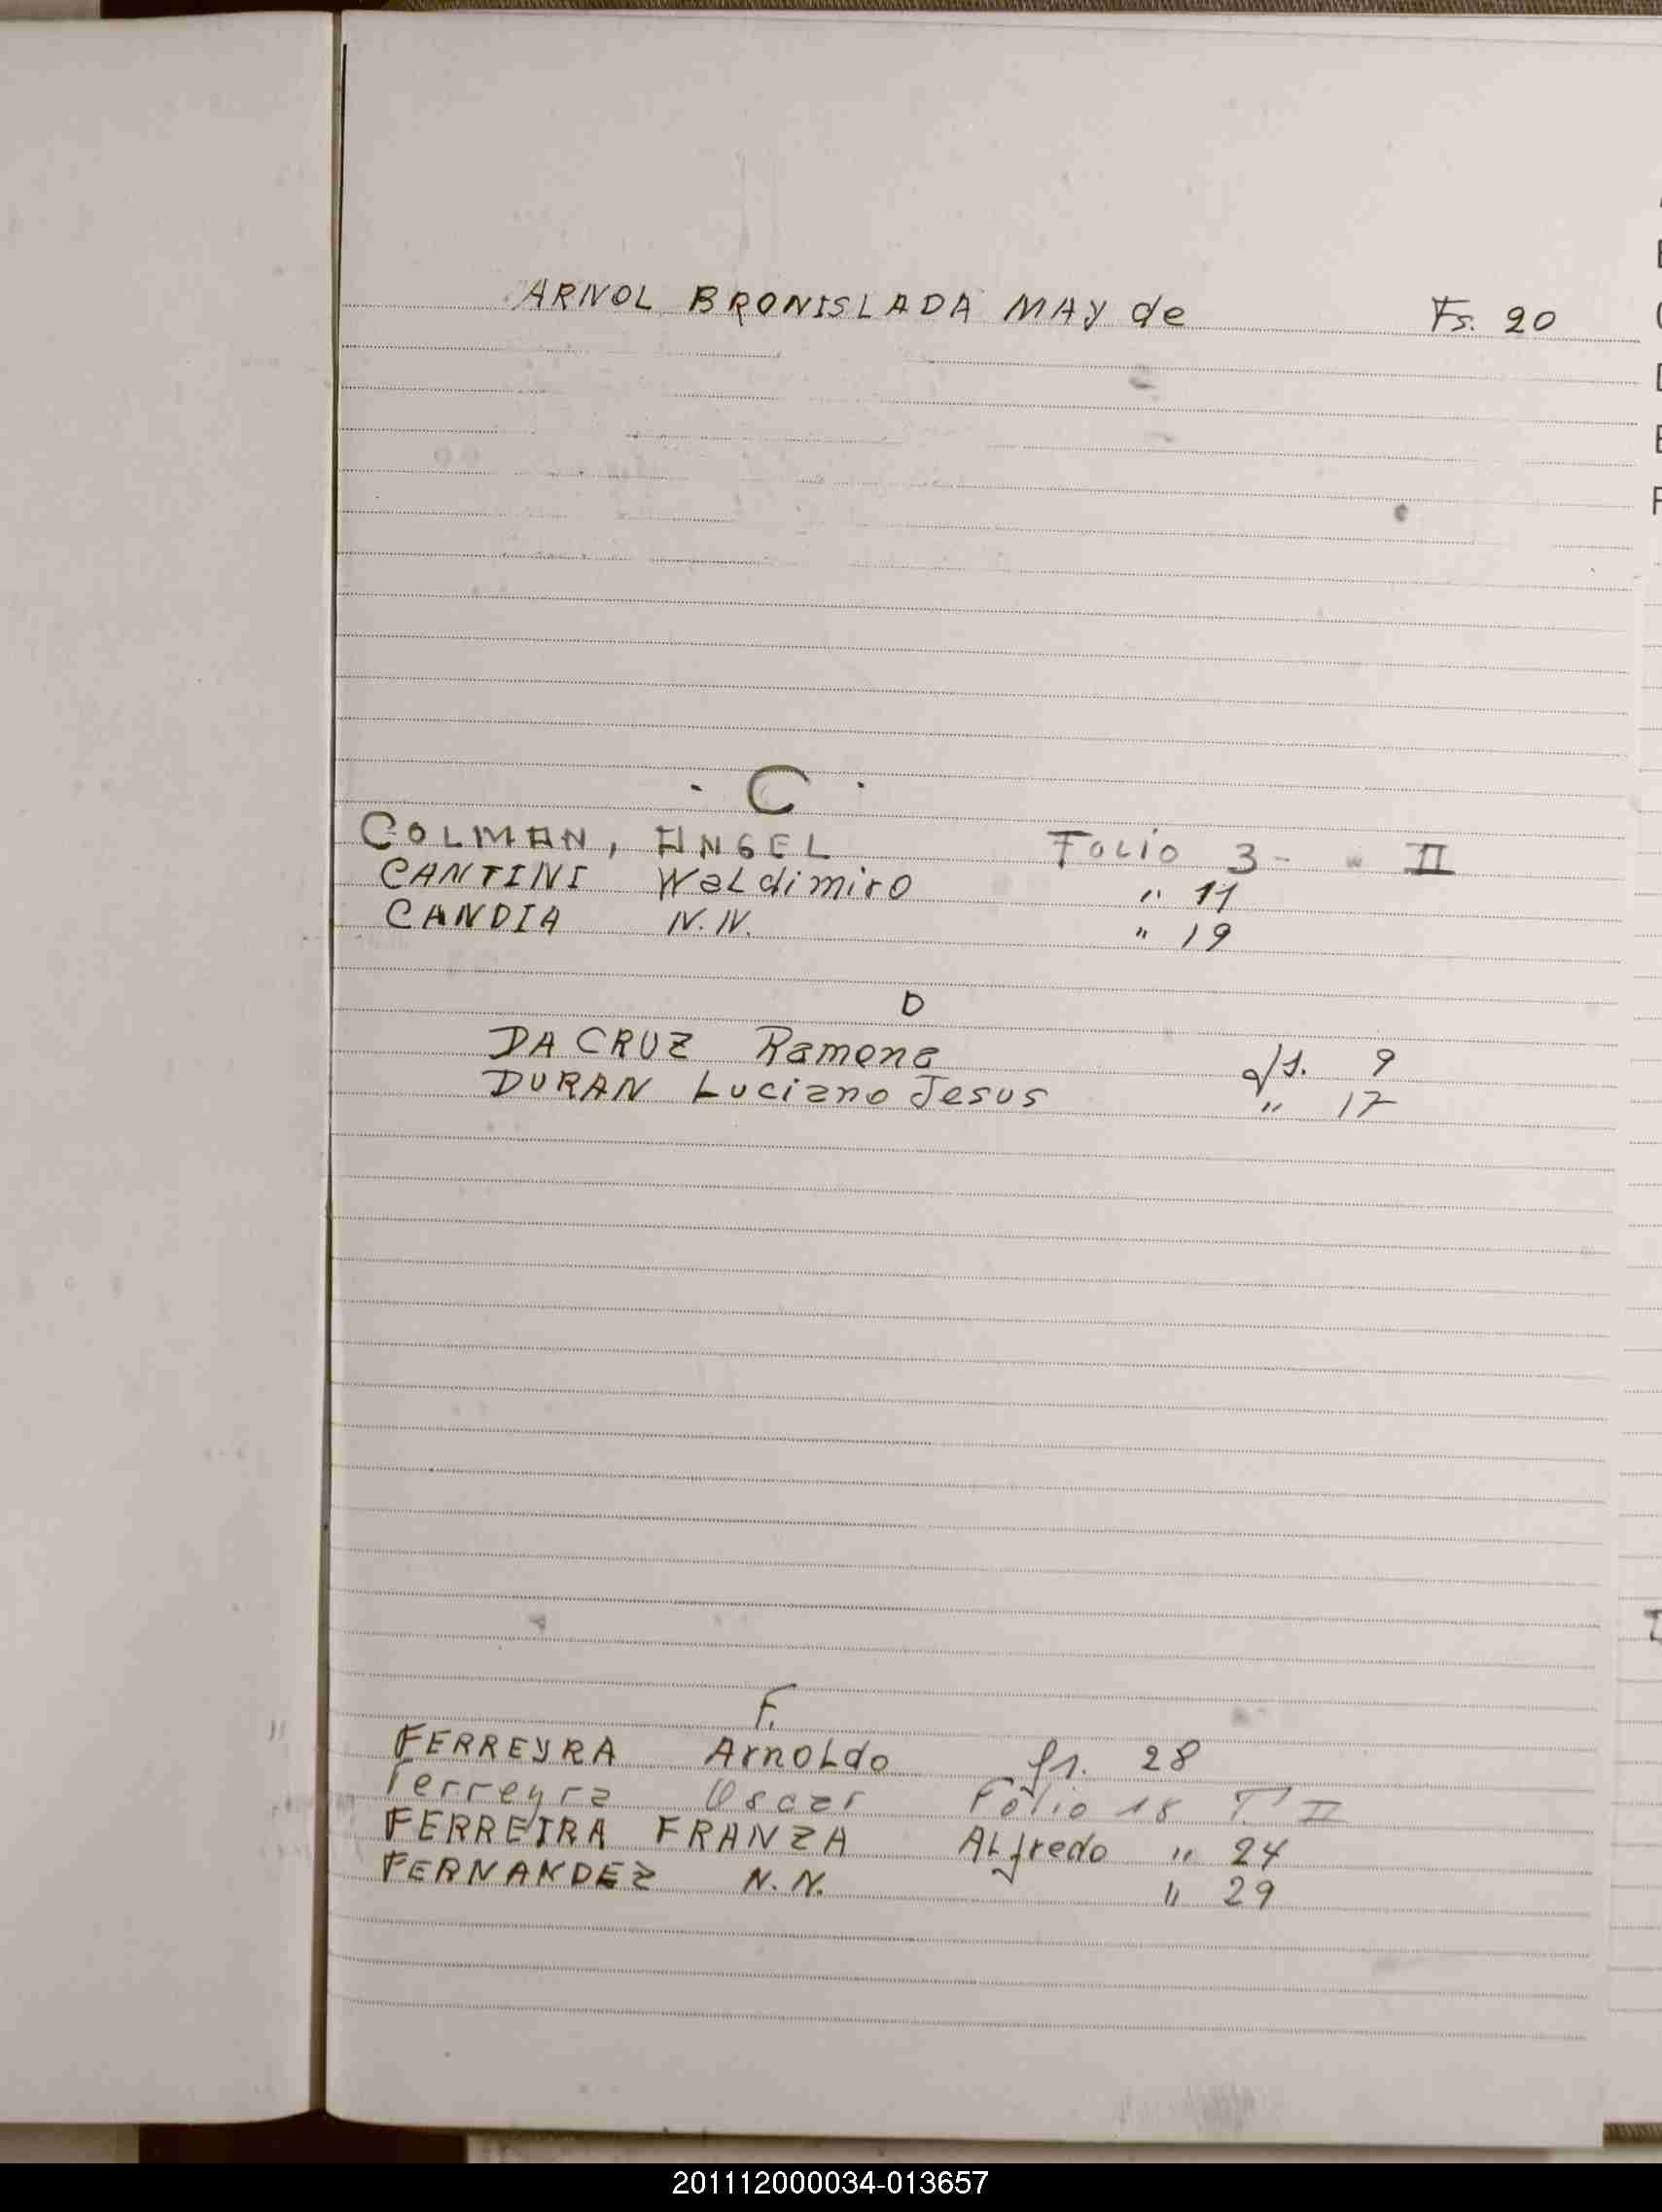 ARNOL BRONISLADA MAY de Fs. 20
C
COLMAN, ANGEL FOLIO 3 - " II
CANTINI Waldimiro " 11
CANDIA N.N. " 19
D
DA CRUZ Ramona 9
DURAN Luciano Jesus " 17
F.
FERREYRA ArnoLdo fs. 28
Ferreyra Oscar Folio 18 T° II
FERREIRA FRANZA ALfredo " 24
FERNANDEZ N.N. " 29
201112000034-013657